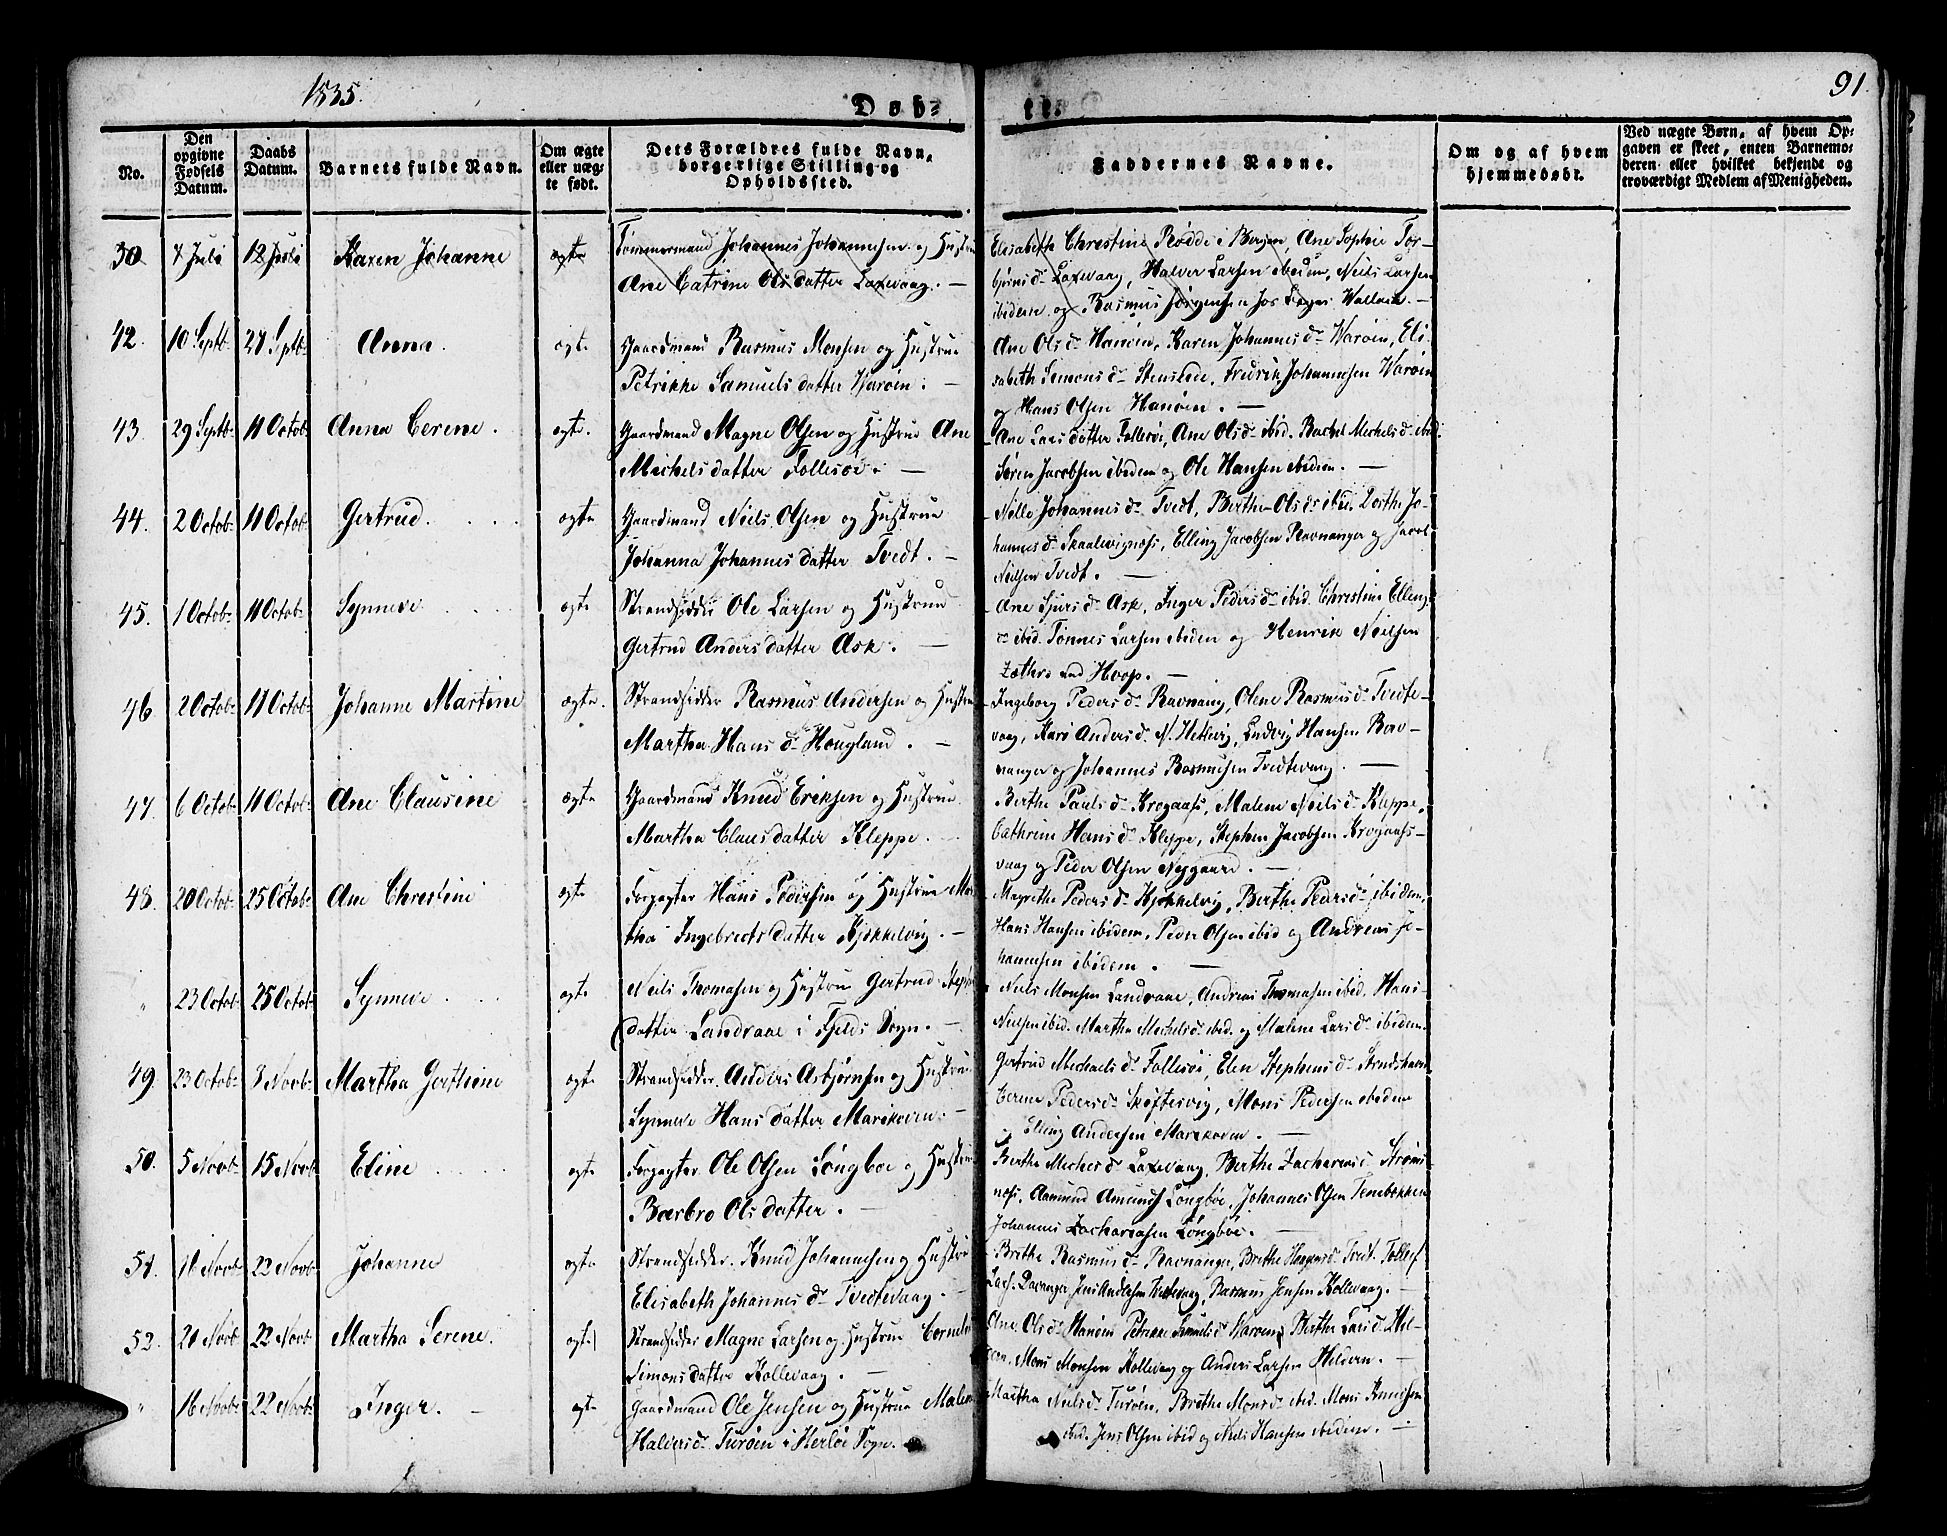 1835.
Døb-
te.
91.
No.
Den opgivne Fødsels Datum.
Daabs Datum.
Barnets fulde Navn.
Om ægte eller uægte født.
Dets Forældres fulde Navn, borgerlige Stilling og Opholdssted.
Faddernes Navne.
Om og af hvem hjemmedøbt.
Ved uægte Børn, af hvem Opgaven er skeet, enten Barnemoderen eller hvilket bekjendt og troværdigt Medlem af Menigheden.
30 7 Juli 12 Juli Karen Johanne ægte Tømmermand Johannes Johannesen og Hustru
Ane Catrine Olsdatter Laxevaag. —
Elisabeth Christine Rødde i Bergen, Ane Sophie Tor-
bjørnsd- Laxevaag, Halver Larsen ibidem, Neils Larsen
ibidem og Rasmus Jørgensen hos
42. 10 Septb- 27 Septb- Anna. ægte Gaardmand Rasmus Monsen og Hustrue
Petrikke Samuelsdatter Warøen. —
Ane Olsd- Hanøen, Karen Johannesd- Warøen, Eli-
sabeth Semonsd- Fredrik Johannesen Warøen
og Hans Olsen Hanøen. —
43. 29 Septb- 11 Octob- Anna Cerene. ægte. Gaardmand Magne Olsen og Hustrue Ane
Michelsdatter Follesøe. —
Ane Larsdatter Follesøe, Ane Olsd- ibid. Rachel Mechelsd- ibid.
Søren Jacobsen ibidem og Ole Hansen ibidem. —
44. 2 Octob- 11 Octob- Gertrud. ægte Gaardmand Neils Olsen og Hustrue
Johanna Johannesdatter Tvedt. —
Nille Johannesd- Tvedt, Berthe Olsd- ibid. Dorthe Jo-
hannesd- Skaalevignæss, Elling Jacobsen Ravnanger og Jacob
Neilsen Tvedt. —
45. 1 Octob- 11 Octob- Synneve ægte Strandsidder Ole Larsen og Hustrue
Gertrud Andersdatter Ask. —
Ane Sjursd- Ask, Inger Pedersd- ibid. Christine Elling-
d- ibid. Tønnes Larsen ibiden og Henrik Neilsen
ved Hoop. —
46. 2 Octob- 11 Octob- Johanne Martine ægte. Strandsidder Rasmus Andersen og Hustru
Martha Hansd- Hougland. —
Ingeborg Pedersd- Ravnang, Olene Rasmusd- Tvedte-
vaag, Kari Andersd- N. Ludvig Hansen Rav-
nanger og Johannes Rasmusen Tvedtevaag. —
47. 6 Octob- 11 Octob- Ane Clausine ægte Gaardmand Knud Eriksen og Hustrue
Martha Clausdatter Kleppe. —
Berthe Paulsd- Krogaass, Malene Neilsd- Kleppe,
Cathrine Hansd- Kleppe, Stephen Jacobsen Krogaass-
vaag og Peder Olsen Nygaard. —
48. 20 Octob- 25 Octob- Ane Christine ægte Forpagter Hans Pedersen og Hustrue Mar-
tha Ingebretsdatter Kjøkkelvig. —
Magrethe Pedersd- Kjøkkelvig, Berthe Pedersd- ibidem,
Hans Hansen ibidem, Peder Olsen ibid og Andreas Jo-
hannesen ibidem. —
" 23 Octob- 25 Octob- Synneve ægte Neils Thomasen og Hustrue Gertrud Steph-
datter Landraae i Fjelds Sogn. —
Niels Monsen Landraae, Andreas Thomasen ibid. Hans
Neilsen ibid. Martha Mechelsd- ibid. og Malene Larsd- ibidem.
49 23 Octob- 8 Novb- Martha Gerthine ægte Strandsidder Anders Asbjørnsen og Hustrue
Synneve Hansdatter Marikoven. —
Gertrud Mechaelsd- Follesøe, Elen Stephensd- Strudshavn
Cerene Pedersd- Skøftesvig, Mons Pedersen ibidem
og Elling Andersen Marikoven. —
50. 5 Novb- 15 Novb- Eline ægte Forpagter Ole Olsen Longbøe og Hustrue
Barbro Olsdatter. —
Berthe Mechelsd- Laxevaag, Berthe Zachariasd- Strøms-
næss, Aamund Amunds Longbøe, Johannes Olsen Tenebekken
Johannes Zachariasen Longbøe. —
51. 16 Novb- 22 Novb- Johanne ægte Strandsidder. Knud Johannesen og Hustru
Elisabeth Johannesd- Tvedtevaag. —
Brithe Rasmusd- Ravnanger, Brithe Haagensd- Tvedt. Tollef
Jens Andersen Tvedtevaag, Rasmus Jensen Kollevaag. —
52. 20 Novb- 22 Novb- Martha Serene. ægte Strandsidder Magne Larsen og Hustrue Cornelia
Simonsdatter Kollevaag. —
Ane Olsd- Hanøen Petrikke Samuelsd- Warøen, Berthe Larsd- Hil-
deren, Mons Monsen Kollevaag og Anders Larsen Hildern. —
" 16 Novb- 22 Novb- Inger. — ægte Gaardmand Ole Jensen og Hustrue Malene
Halversd- Turøen i Herløe Sogn.
Martha Nielsd- Turøen, Brithe Monsd- ibid. Mons Knudsen
ibid. Jens Olsen ibid og Niels Hansen ibidem. —